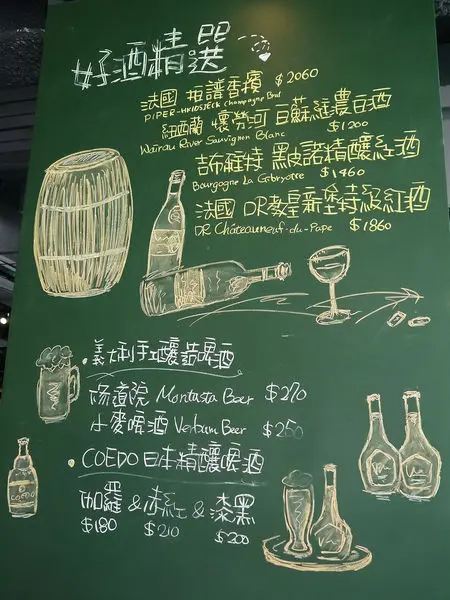 好酒精選
法國 拍譜香擯 $2060
PIPER-HEIDSIECK Champagne Brut
紐西蘭 懷勞河 白蘇維濃白酒
Wairau River Sauvignon Blanc $1200
吉布羅特 黑皮諾精釀紅酒
Bourgogne La Gibryotte $1460
法國 DR教皇新堡特級紅酒
DR Châteauneuf-du-Pape $1860
・義大利手工釀造啤酒
修道院 Montasta Beer $270
小麥啤酒 Verbum Beer $250
・COEDO日本精釀啤酒
伽羅 & 赤紅 & 漆黑
$180 $210 $200
COEDO